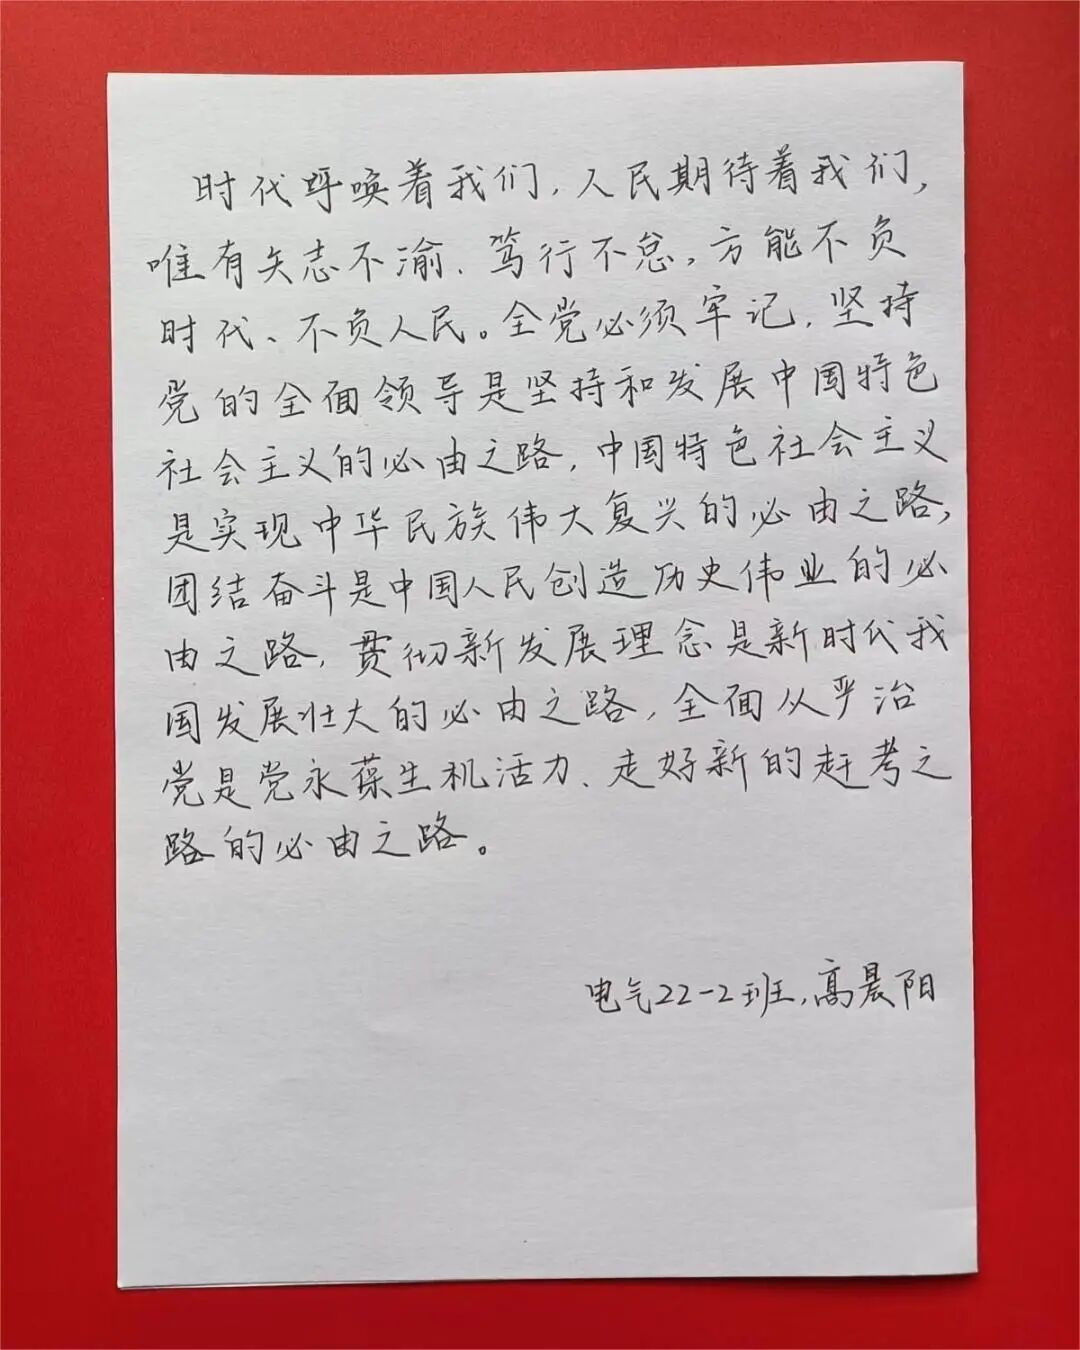 时代呼唤着我们，人民期待着我们，
唯有矢志不渝、笃行不怠，方能不负
时代、不负人民。全党必须牢记，坚持
党的全面领导是坚持和发展中国特色
社会主义的必由之路，中国特色社会主义
是实现中华民族伟大复兴的必由之路，
团结奋斗是中国人民创造历史伟业的必
由之路，贯彻新发展理念是新时代我
国发展壮大的必由之路，全面从严治
党是党永葆生机活力、走好新的赶考之
路的必由之路。
电气22-2班，高晨阳